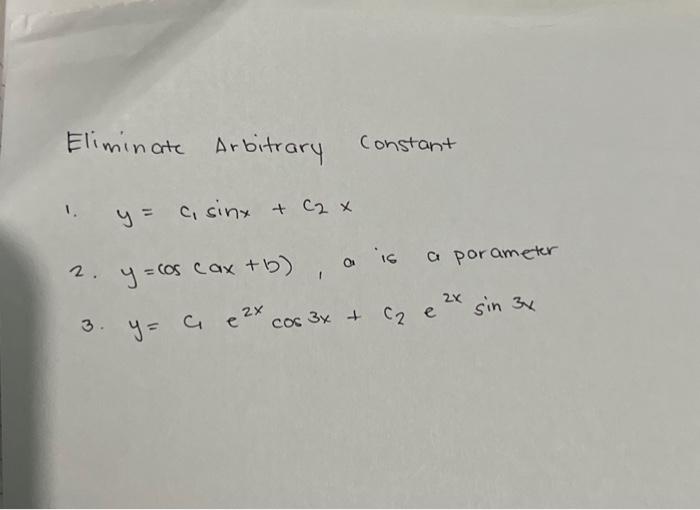 Eliminate Arbitrary Constant
1. y = c₁ sinx + c₂ x
2. y = cos (ax + b) , a is a parameter
3. y = c₁ e^2x cos 3x + c₂ e^2x sin 3x